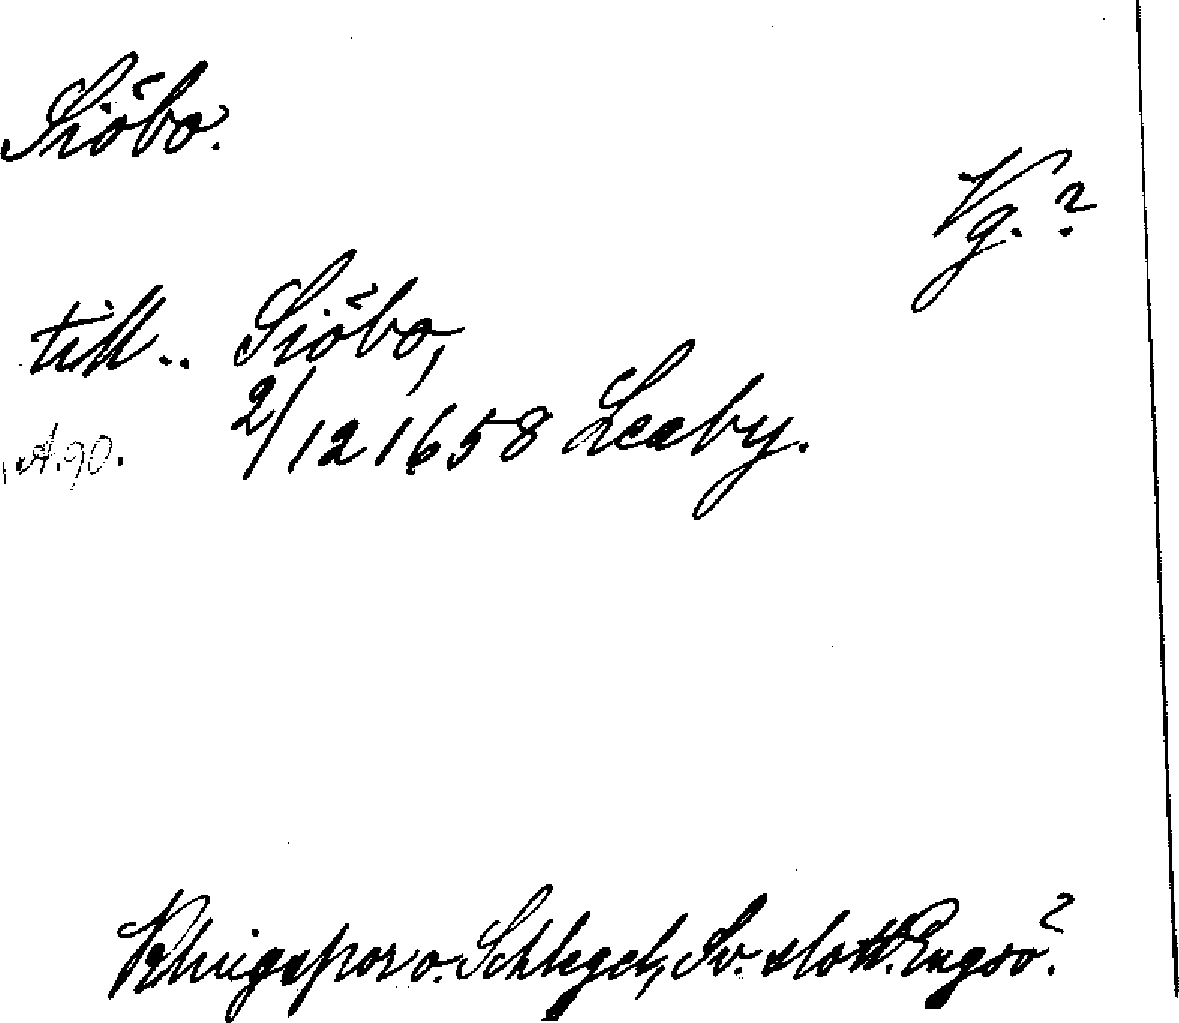 Siöbo.
Vg.?
till.. Siöbo,
2/12 1658 Lexby.
A.90.
Klingspor o. Schlegel, Sv. slott. Engsö?